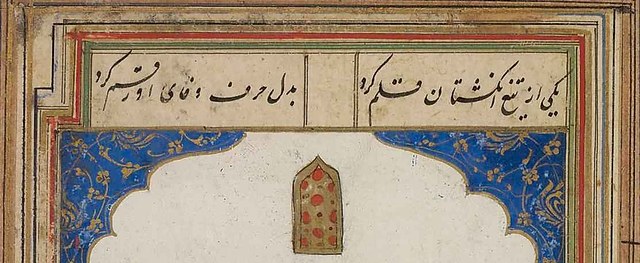 یکی از تیغ انگشتان قلم کرد
بدل حرف وفای او رقم کرد